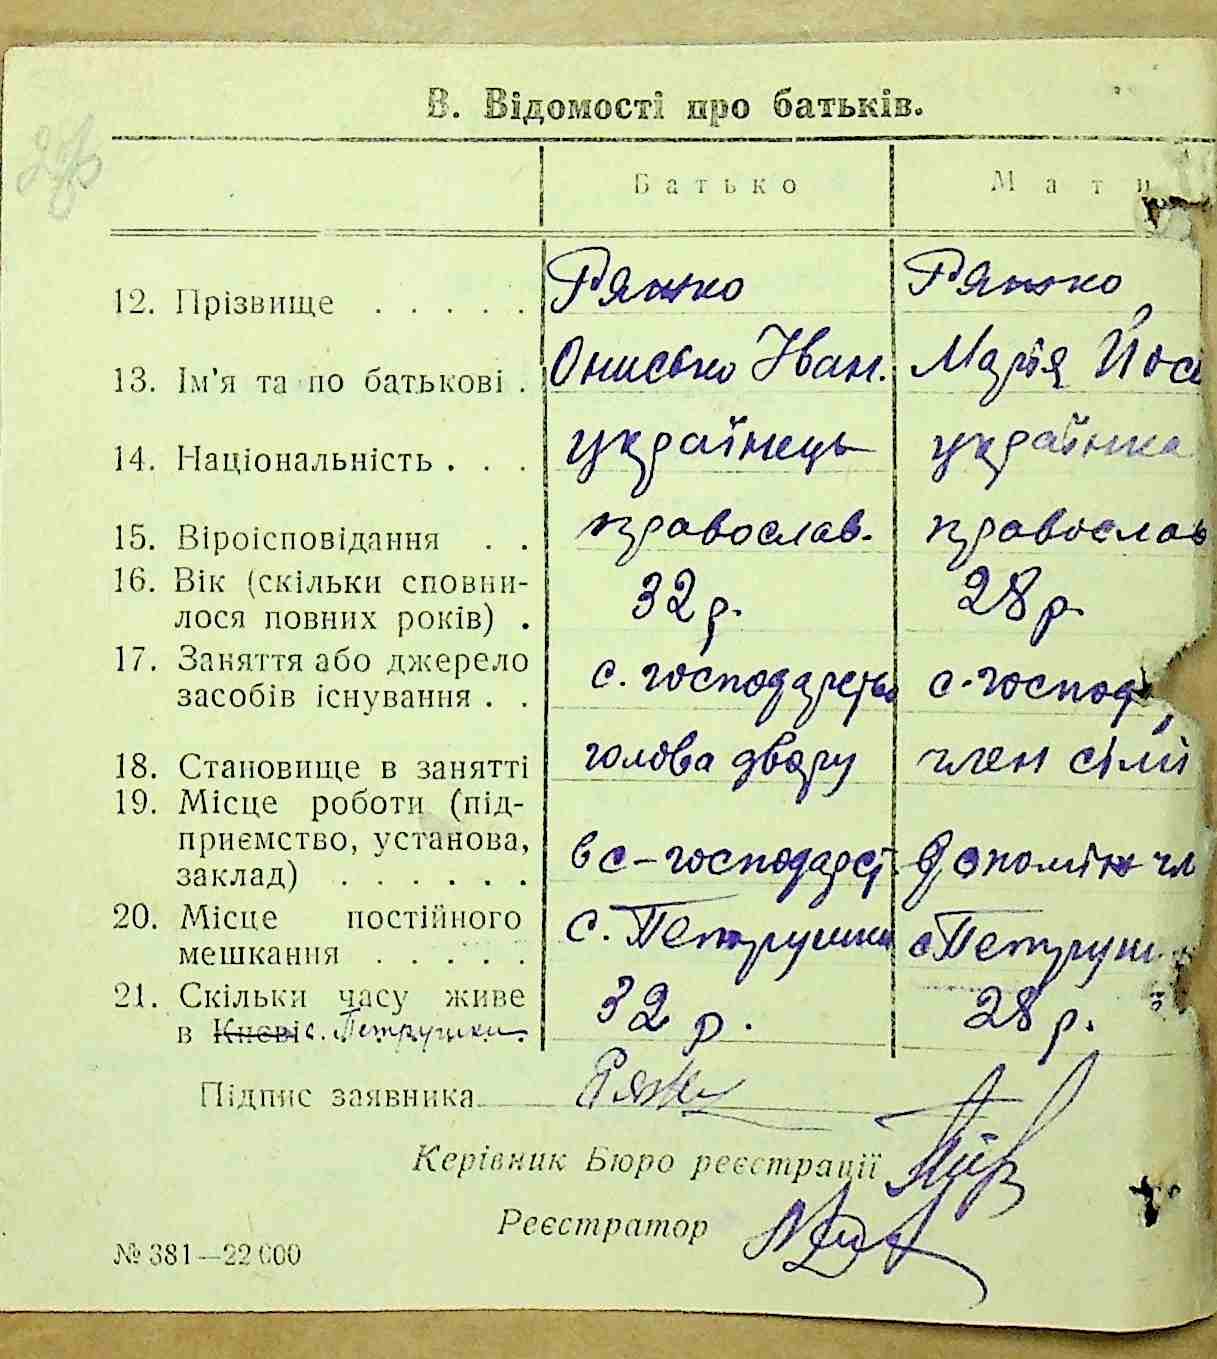 В. Відомості про батьків.
Батько Мати
12. Прізвище . . . . . Ряжко Ряжко
13. Ім'я та по батькові . Онисько Іван. Марія Йос
14. Національність . . . українець українка
15. Віроісповідання . . православ. православ
16. Вік (скільки сповни-
лося повних років) . 32 р. 28 р.
17. Заняття або джерело
засобів існування . . с. господарство с. господ
18. Становище в занятті голова двору член сімї
19. Місце роботи (під-
приємство, установа,
заклад) . . . . . . в с-господарст допоміж чл
20. Місце постійного
мешкання . . . . . с. Петрушки с Петруш
21. Скільки часу живе
в Києві с. Петрушки 32 р. 28 р.
Підпис заявника
Керівник Бюро реєстрації
Реєстратор
№ 381—22 000